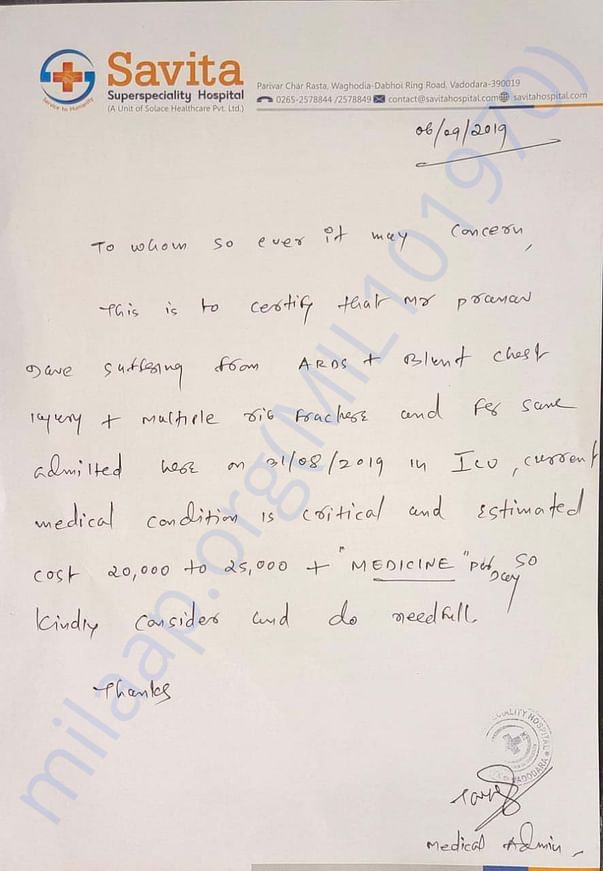 Savita
Superspeciality Hospital
(A Unit of Solace Healthcare Pvt. Ltd.)
Service to Humanity
Parivar Char Rasta, Waghodia-Dabhoi Ring Road, Vadodara-390019
0265-2578844 /2578849 contact@savitahospital.com savitahospital.com
06/09/2019
To whom so ever it may concern,
This is to certify that Mr pranav
Dave suffering from ARDS + Blunt chest
injury + multiple rib fracture and for same
admitted here on 31/08/2019 in ICU, current
medical condition is critical and estimated
cost 20,000 to 25,000 + "MEDICINE" per Day so
kindly consider and do needfull
Thanks
Medical Admin
milaap.org(MIL101970)